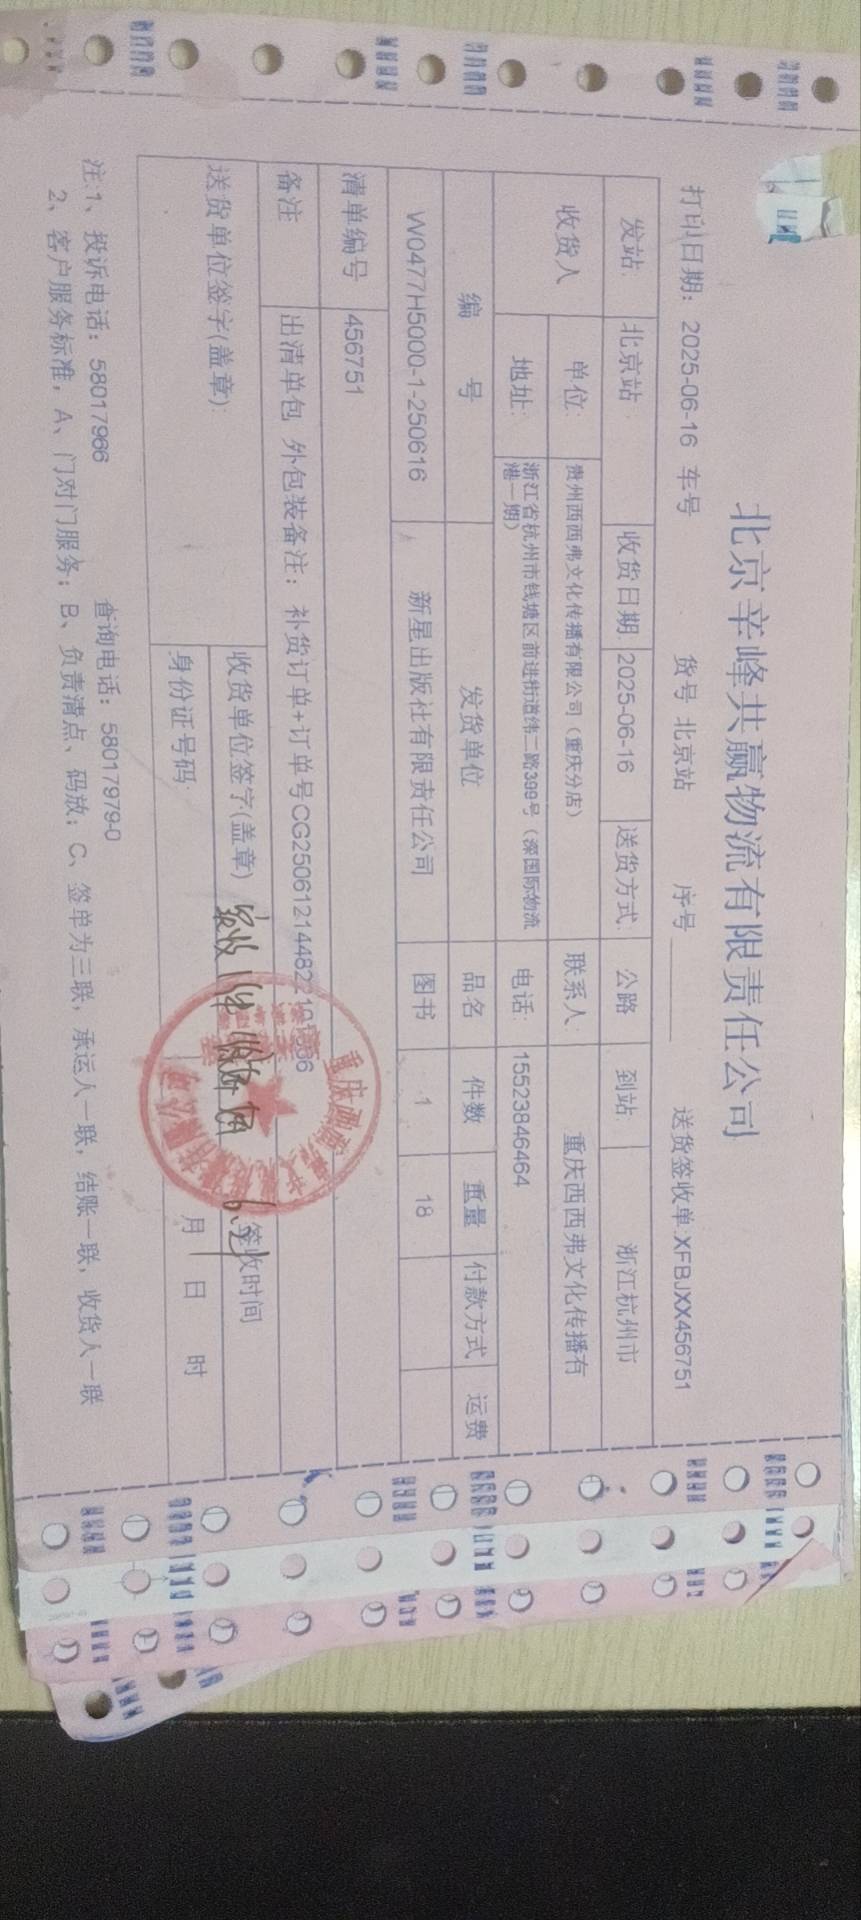 北京辛峰共赢物流有限责任公司
打印日期: 2025-06-16 车号 货号 北京站 序号 送货签收单:XFBJXX456751
发站: 北京站 收货日期 2025-06-16 送货方式: 公路 到站 浙江杭州市
收货人 单位: 贵州西西弗文化传播有限公司（重庆分店） 联系人 重庆西西弗文化传播有
地址: 浙江省杭州市钱塘区前进街道纬二路399号（深国际物流
港一期） 电话: 15523846464
编 号 发货单位 品名 件数 重量 付款方式 运费
W0477H5000-1-250616 新星出版社有限责任公司 图书 1 18
清单编号 456751
备注 出清单包 外包装备注：补货订单+订单号CG2506121448221
送货单位签字(盖章): 收货单位签字(盖章) 实收1件 签收时间
身份证号码: 月 日 时
注:1、投诉电话：58017966 查询电话：58017979-0
2、客户服务标准，A、门对门服务；B、负责清点、码放；C、签单为三联，承运人一联，结账一联，收货人一联